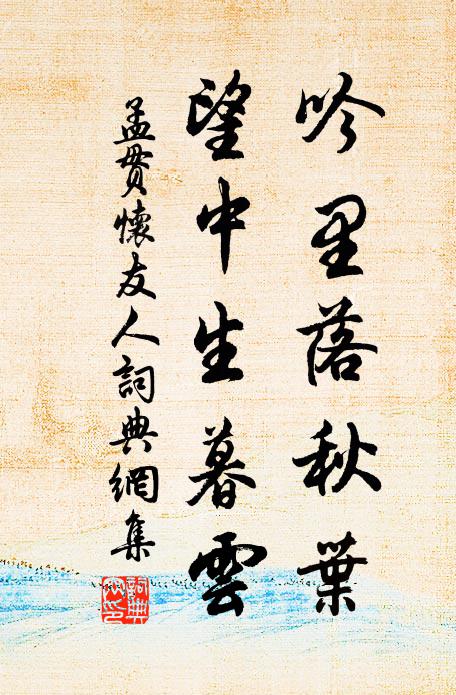 吟里落秋葉
望中生暮雲
孟貫懷友人詞典網集